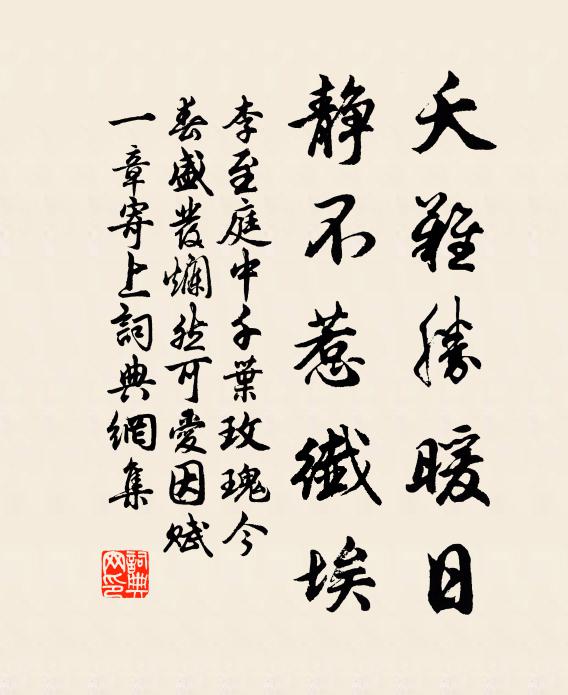 夭難勝暖日
靜不惹纖埃
李至庭中千葉玫瑰今
春盛發爛然可愛因賦
一章寄上詞典網集
詞典
网印